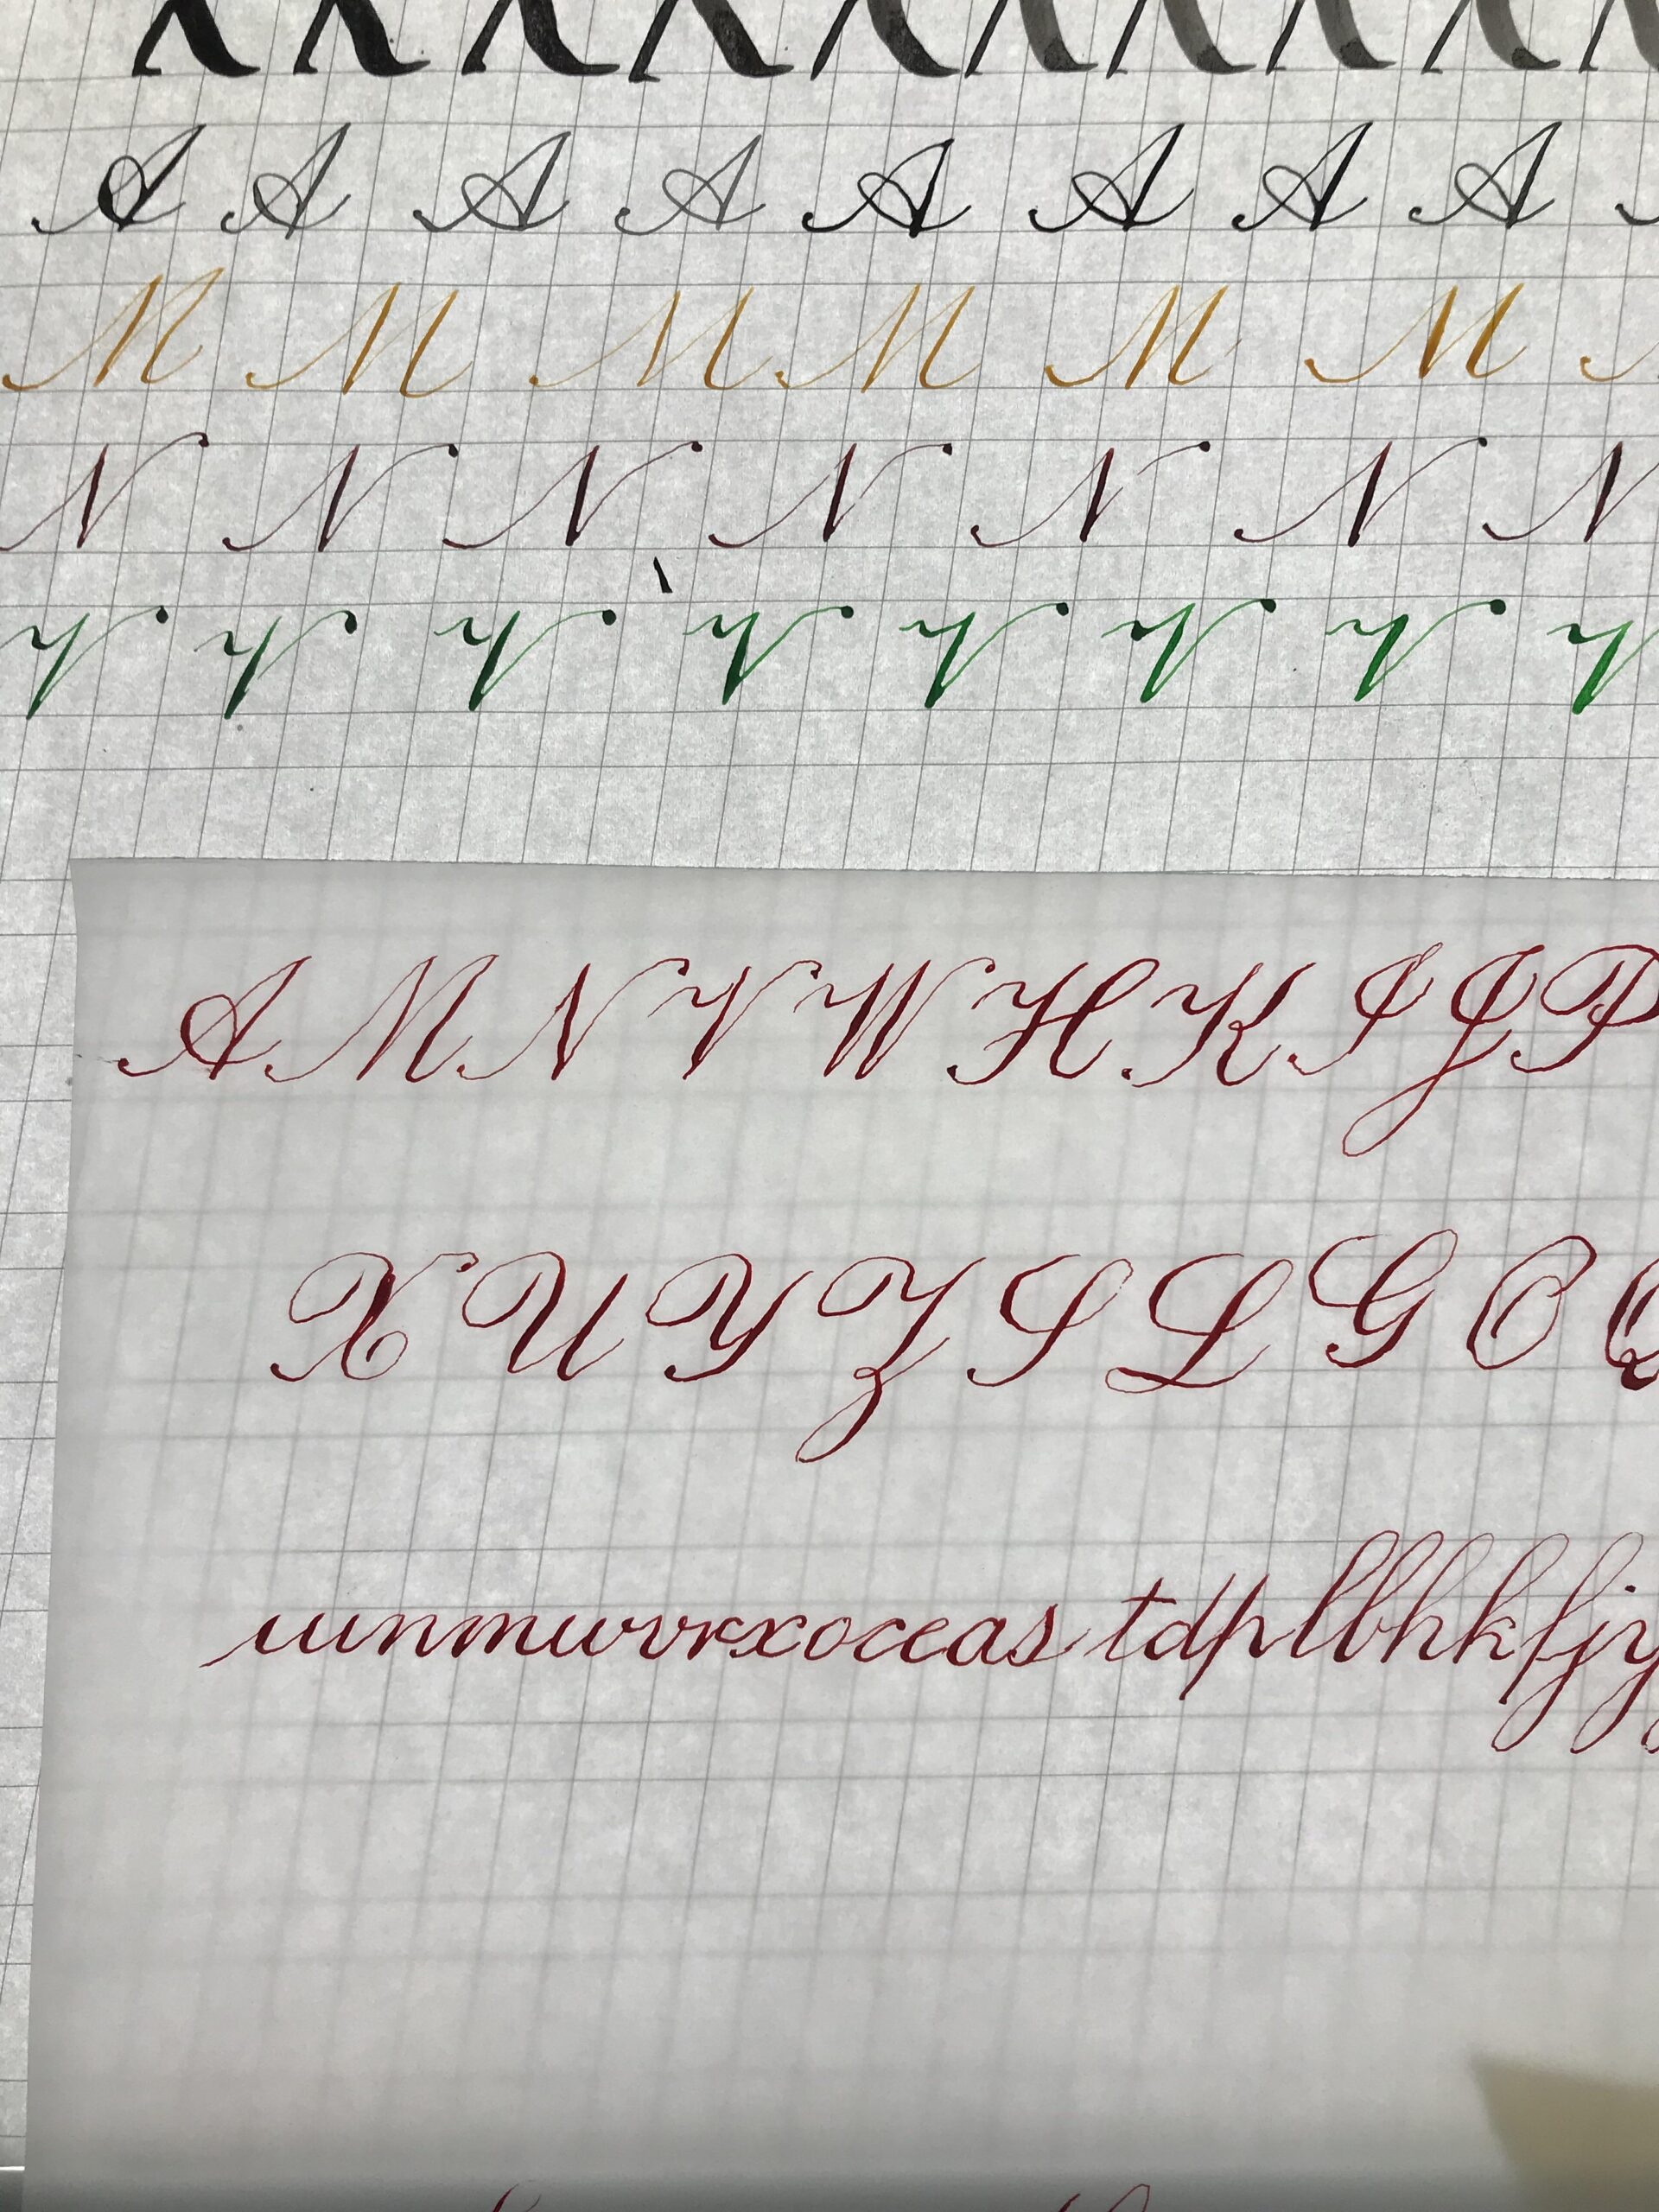 A A A A A A A A
M M M M M M
N N N N N N N
V V V V V V V V
A M N V W H K I J P
X U Y Z S L G O Q
iunmwvrxoceas tdplbhkfjy